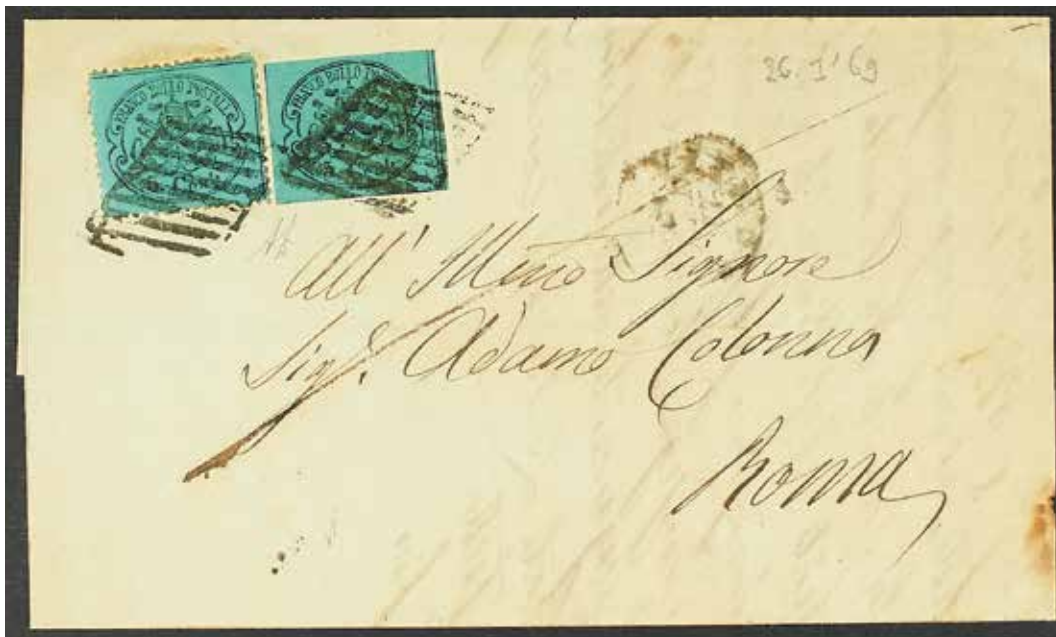 FRANCO BOLLO POSTALE
FRANCO BOLLO POSTALE
26. 1' 69
All' Illmo Signore
Sigr. Adamo Colonna
Roma